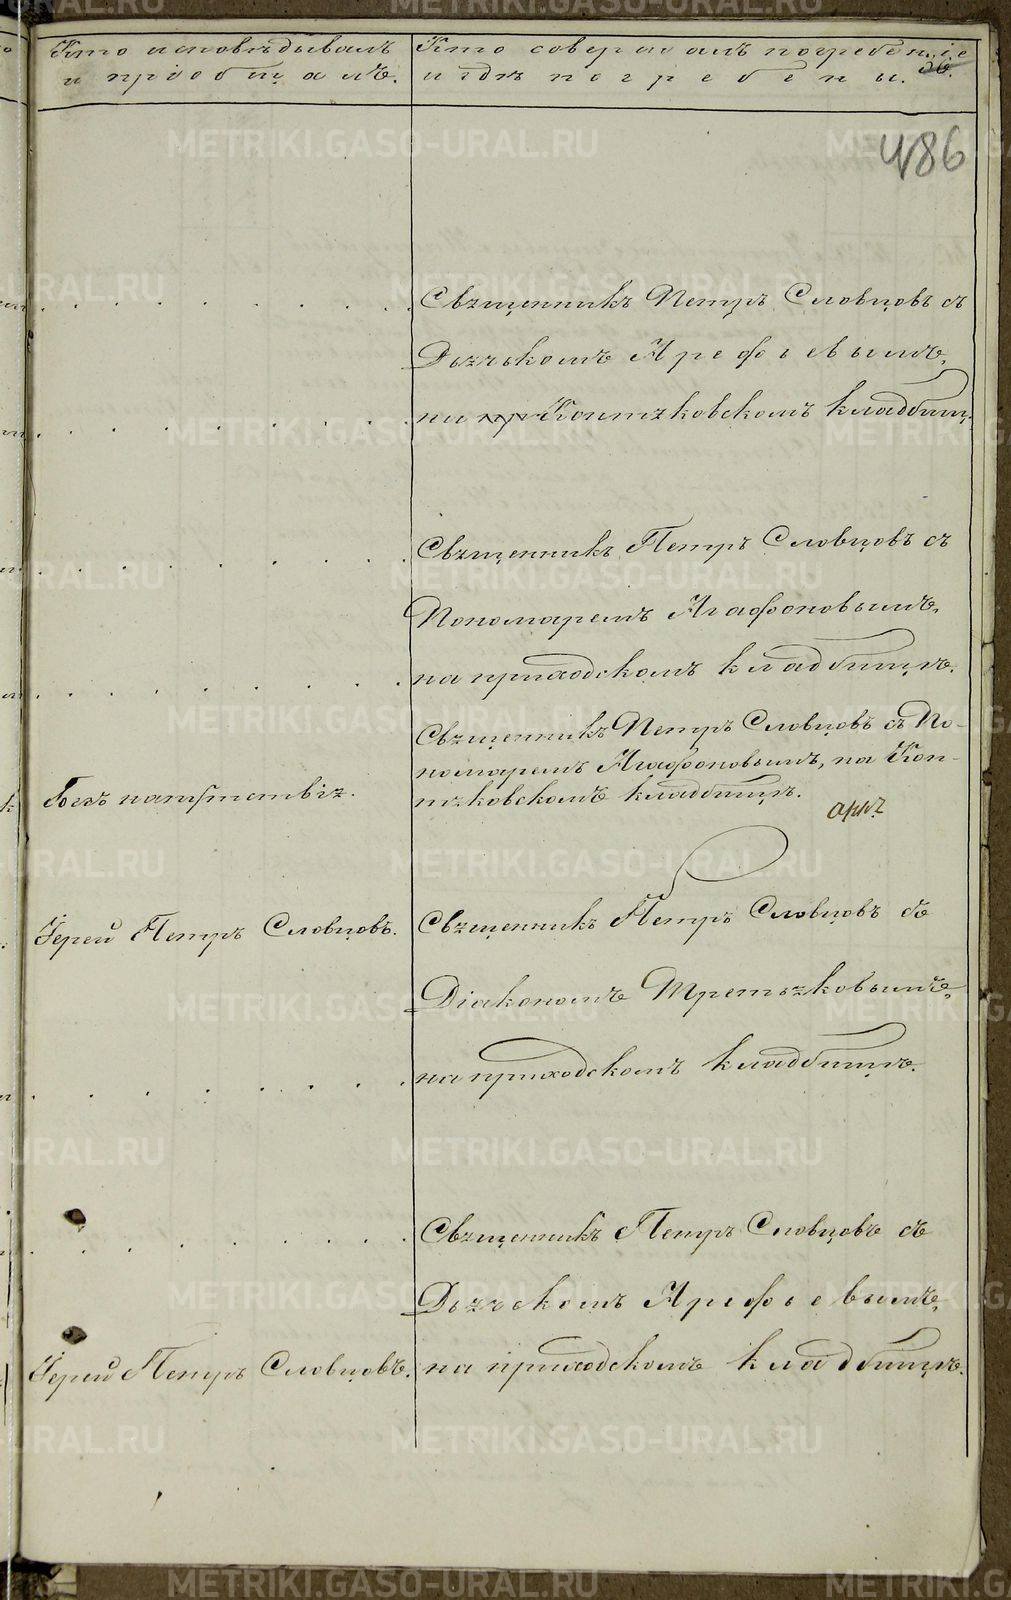 Кто исповѣдывалъ
и пріобщалъ.
Кто совершалъ погребеніе
и гдѣ погребены.
486
Священникъ Петръ Словцовъ съ
Дьячкомъ Арефьевымъ,
на Контяковскомъ кладбищ.
Священникъ Петръ Словцовъ съ
Пономаремъ Агафоновымъ,
на приходскомъ кладбищѣ.
Священникъ Петръ Словцовъ съ По-
номаремъ Агафоновымъ, на Кон-
тяковскомъ кладбищѣ.
Безъ напутствія.
Іерей Петръ Словцовъ.
Священникъ Петръ Словцовъ съ
Діакономъ Третьяковымъ,
на приходскомъ кладбищѣ.
Священникъ Петръ Словцовъ съ
Дьячкомъ Арефьевымъ,
Іерей Петръ Словцовъ.
на приходскомъ кладбищѣ.
METRIKI.GASO-URAL.RU